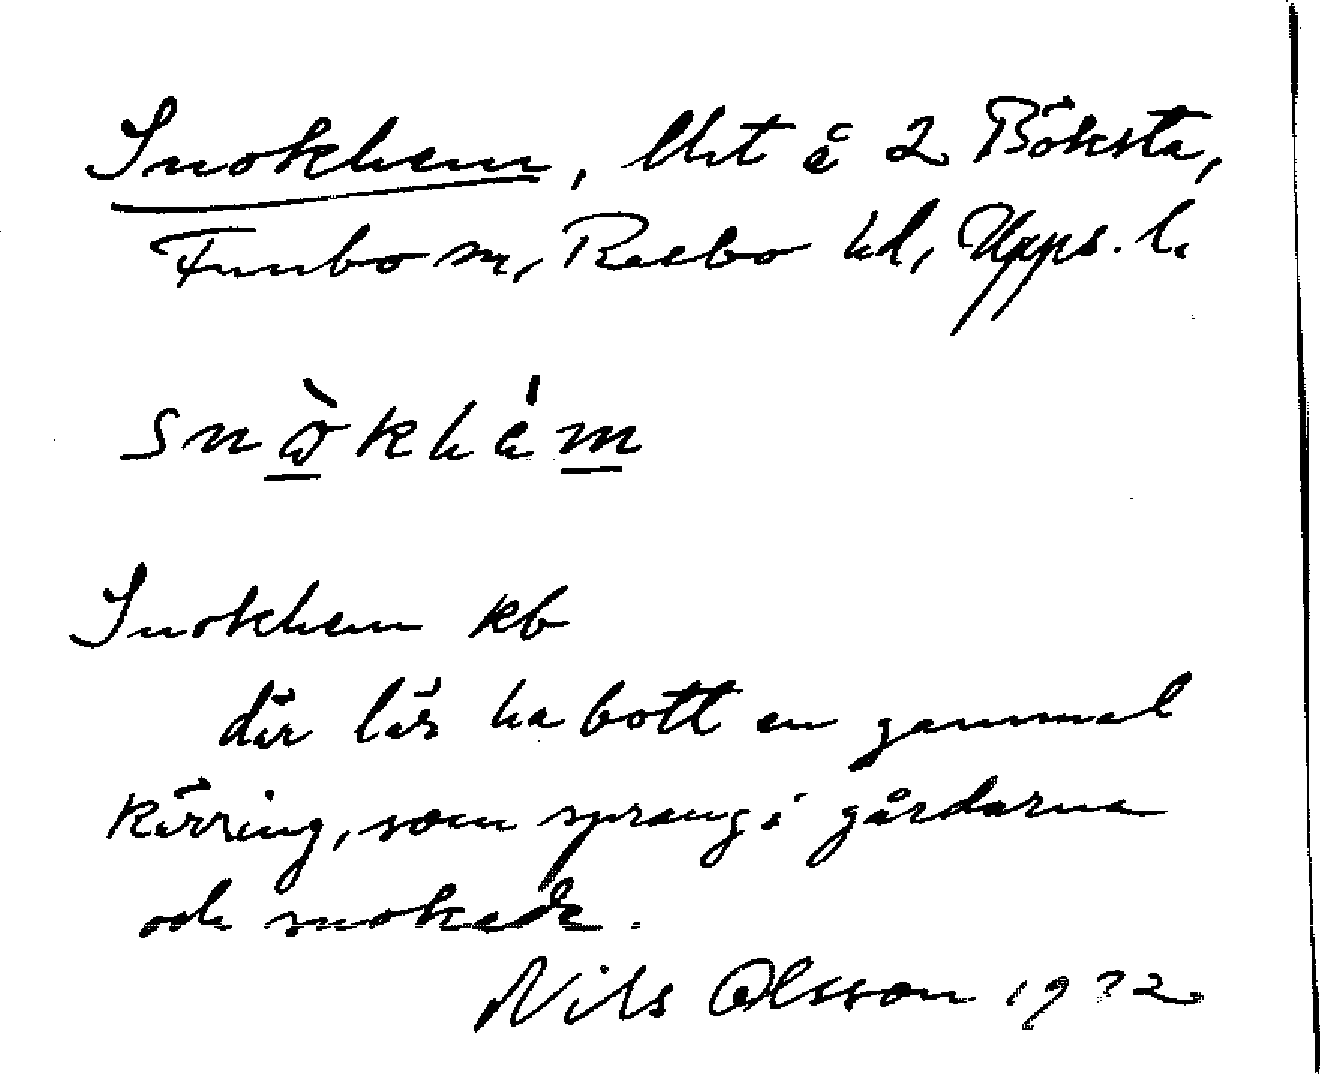 Snokhem, lht å 2 Böksta,
Funbo sn, Rasbo hd, Upps. l.
snòkhém
Snokhem kb
där lär ha bott en gammal
kärring, som sprang i gårdarna
och snokade.
Nils Olsson 1932